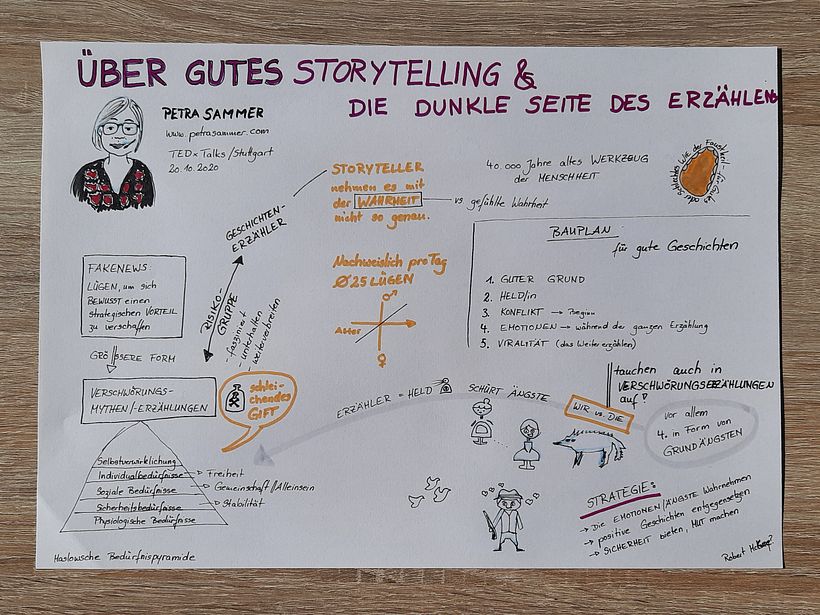 ÜBER GUTES STORYTELLING &
DIE DUNKLE SEITE DES ERZÄHLENS
PETRA SAMMER
www.petrasammer.com
TEDx Talks / Stuttgart
20.10.2020
STORYTELLER
nehmen es mit
der WAHRHEIT
nicht so genau.
vs gefühlte Wahrheit
40.000 Jahre altes WERKZEUG
der MENSCHHEIT
GESCHICHTEN-
ERZÄHLER
RISIKO-
GRUPPE
- fasziniert
- unterhalten
- weiterverbreiten
Nachweislich pro Tag
Ø 25 LÜGEN
Alter
BAUPLAN
für gute Geschichten
1. GUTER GRUND
2. HELD/in
3. KONFLIKT → Beginn
4. EMOTIONEN → während der ganzen Erzählung
5. VIRALITÄT (das Weitererzählen)
tauchen auch in
VERSCHWÖRUNGSERZÄHLUNGEN
auf!
vor allem
4. in Form von
GRUNDÄNGSTEN
FAKENEWS:
LÜGEN, um sich
BEWUSST einen
strategischen VORTEIL
zu verschaffen
GRÖSSERE FORM
VERSCHWÖRUNGS-
MYTHEN/-ERZÄHLUNGEN
schlei-
chendes
GIFT
ERZÄHLER = HELD
SCHÜRT ÄNGSTE
WIR vs. DIE
Selbstverwirklichung
Individualbedürfnisse → Freiheit
Soziale Bedürfnisse → Gemeinschaft/Alleinsein
Sicherheitsbedürfnisse → Stabilität
Physiologische Bedürfnisse
Maslowsche Bedürfnispyramide
STRATEGIE:
→ Die EMOTIONEN/ÄNGSTE Wahrnehmen
→ positive Geschichten entgegensetzen
→ SICHERHEIT bieten, MUT machen